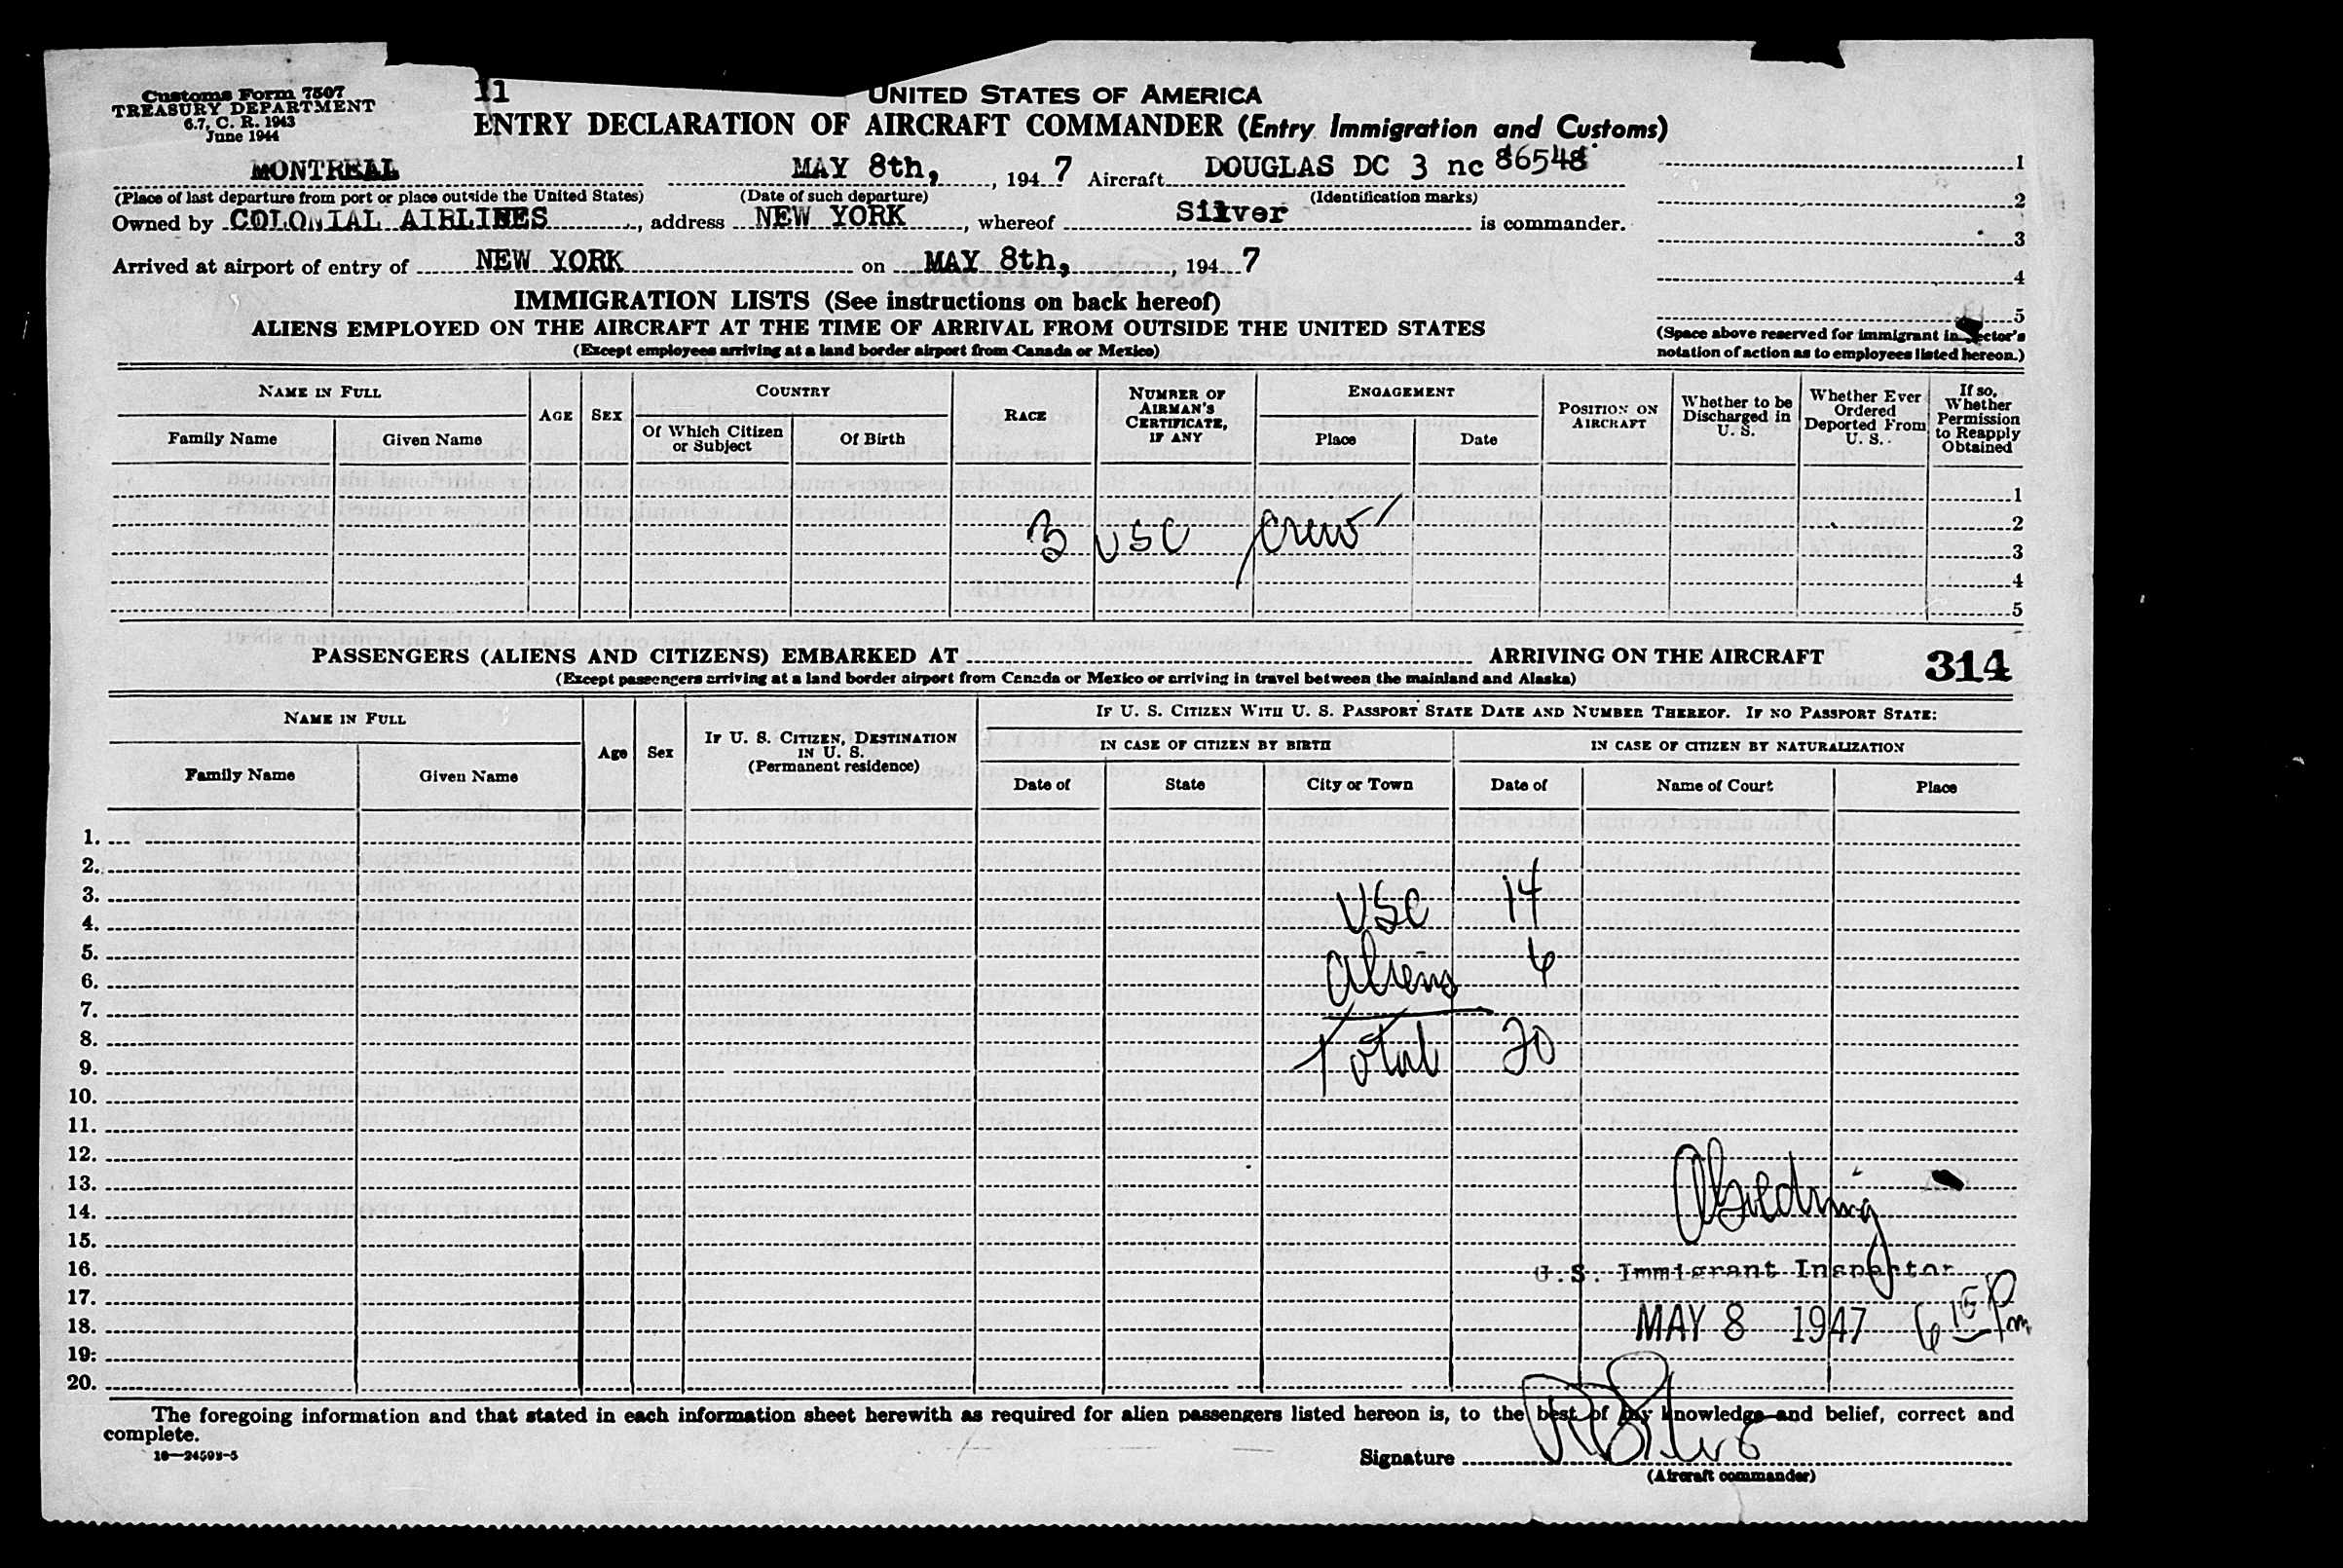 Customs Form 7507
TREASURY DEPARTMENT
6.7, C. R. 1943
June 1944
11
UNITED STATES OF AMERICA
ENTRY DECLARATION OF AIRCRAFT COMMANDER (Entry Immigration and Customs)
MONTREAL MAY 8th, , 194 7 Aircraft DOUGLAS DC 3 nc 86548
(Place of last departure from port or place outside the United States) (Date of such departure) (Identification marks)
Owned by COLONIAL AIRLINES , address NEW YORK , whereof Silver is commander.
Arrived at airport of entry of NEW YORK on MAY 8th, , 194 7
1
2
3
4
5
(Space above reserved for immigrant inspector's
notation of action as to employees listed hereon.)
IMMIGRATION LISTS (See instructions on back hereof)
ALIENS EMPLOYED ON THE AIRCRAFT AT THE TIME OF ARRIVAL FROM OUTSIDE THE UNITED STATES
(Except employees arriving at a land border airport from Canada or Mexico)
NAME IN FULL
Family Name Given Name
AGE
SEX
COUNTRY
Of Which Citizen or Subject
Of Birth
RACE
NUMBER OF AIRMAN'S CERTIFICATE, IF ANY
ENGAGEMENT
Place Date
POSITION ON AIRCRAFT
Whether to be Discharged in U. S.
Whether Ever Ordered Deported From U. S.
If so, Whether Permission to Reapply Obtained
1
2
3 USC crew
3
4
5
PASSENGERS (ALIENS AND CITIZENS) EMBARKED AT ARRIVING ON THE AIRCRAFT 314
(Except passengers arriving at a land border airport from Canada or Mexico or arriving in travel between the mainland and Alaska)
NAME IN FULL
Family Name Given Name
Age
Sex
IF U. S. CITIZEN, DESTINATION IN U. S.
(Permanent residence)
IF U. S. CITIZEN WITH U. S. PASSPORT STATE DATE AND NUMBER THEREOF. IF NO PASSPORT STATE:
IN CASE OF CITIZEN BY BIRTH IN CASE OF CITIZEN BY NATURALIZATION
Date of State City or Town Date of Name of Court Place
1.
2.
3. USC 14
4.
5.
6. aliens 6
7.
8.
9. Total 20
10.
11.
12.
13.
14.
15.
16. U.S. Immigrant Inspector
17.
18. MAY 8 1947 6 15 Pm
19.
20.
The foregoing information and that stated in each information sheet herewith as required for alien passengers listed hereon is, to the best of my knowledge and belief, correct and
complete.
16—24598-5
Signature
(Aircraft commander)